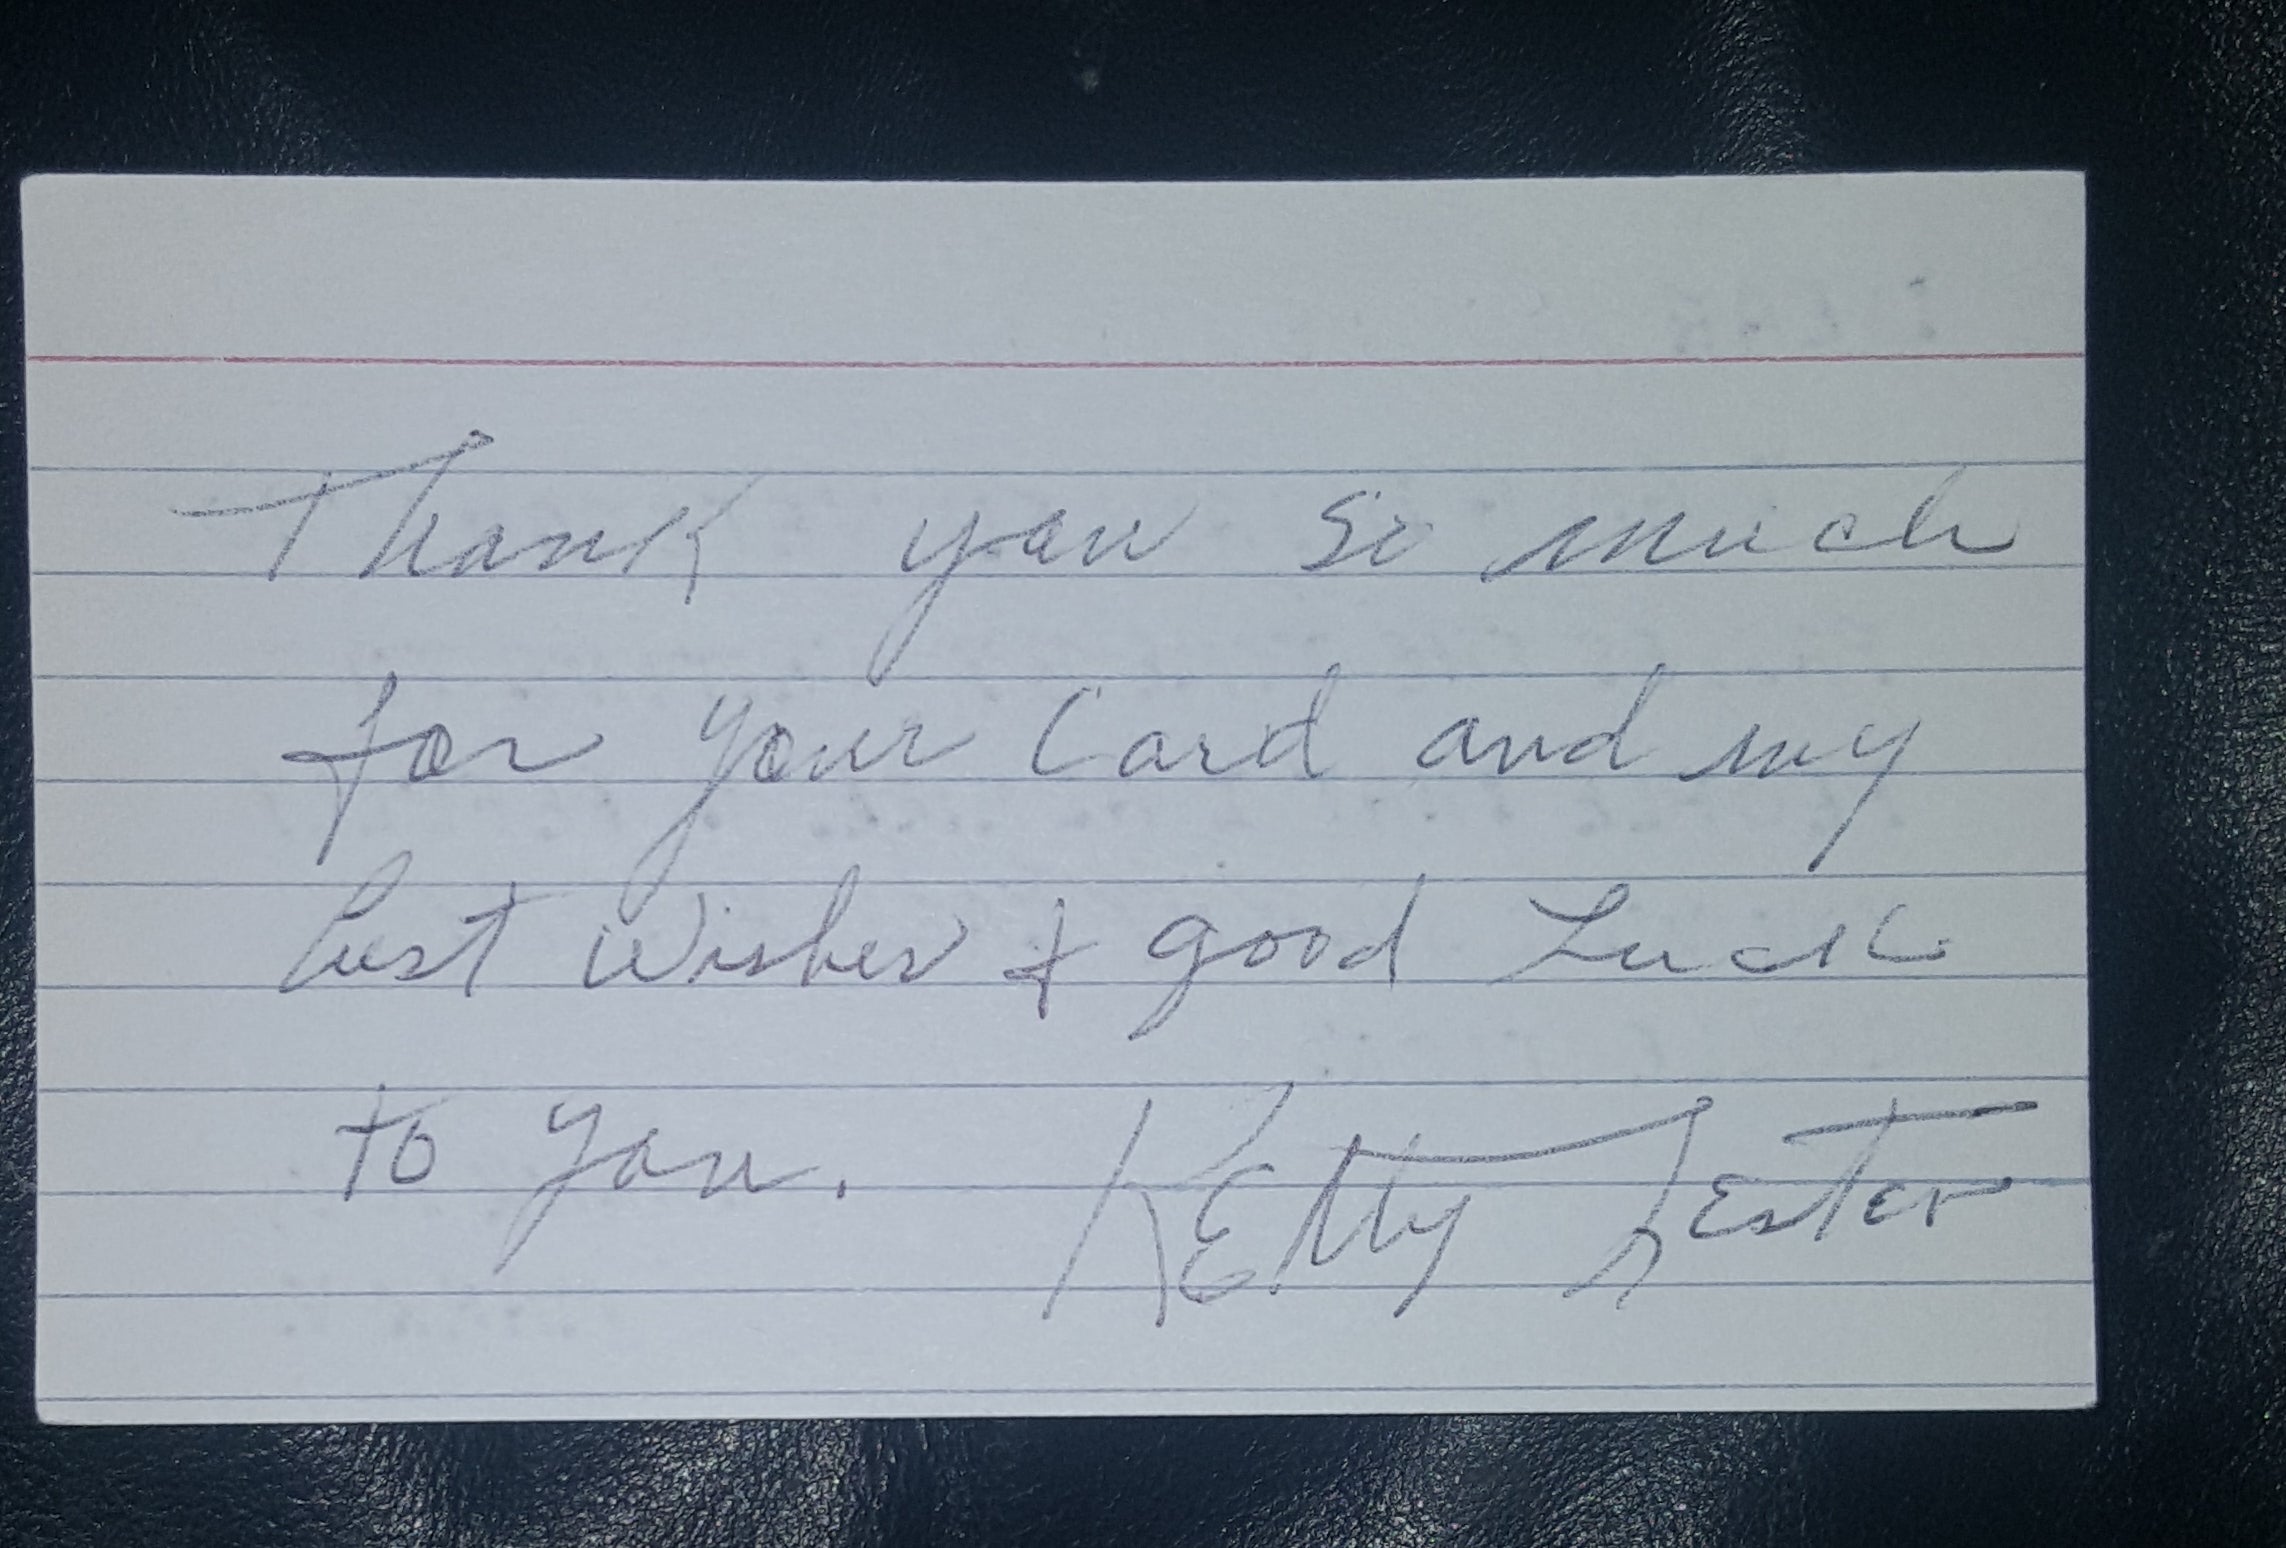 Thank you so much
for your Card and my
best wishes & good Luck
to you. Ketty Lester